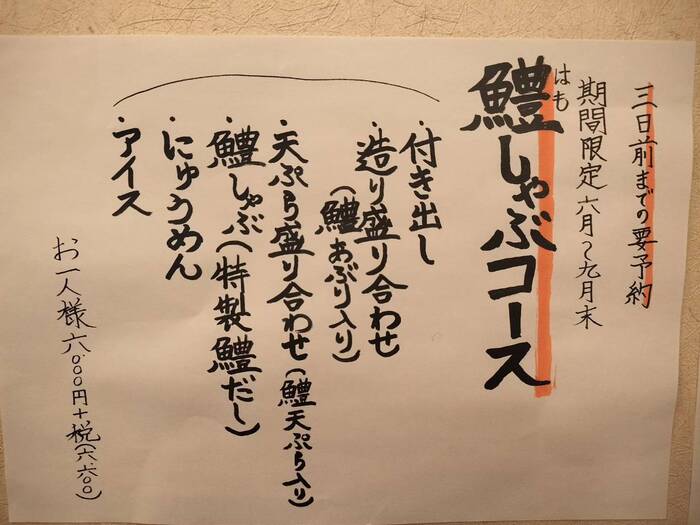 三日前までの要予約
期間限定 六月～九月末
はも
鱧しゃぶコース
・付き出し
・造り盛り合わせ
(鱧あぶり入り)
・天ぷら盛り合わせ(鱧天ぷら入り)
・鱧しゃぶ(特製鱧だし)
・にゅうめん
・アイス
お一人様 六、〇〇〇円+税(六、六〇〇)